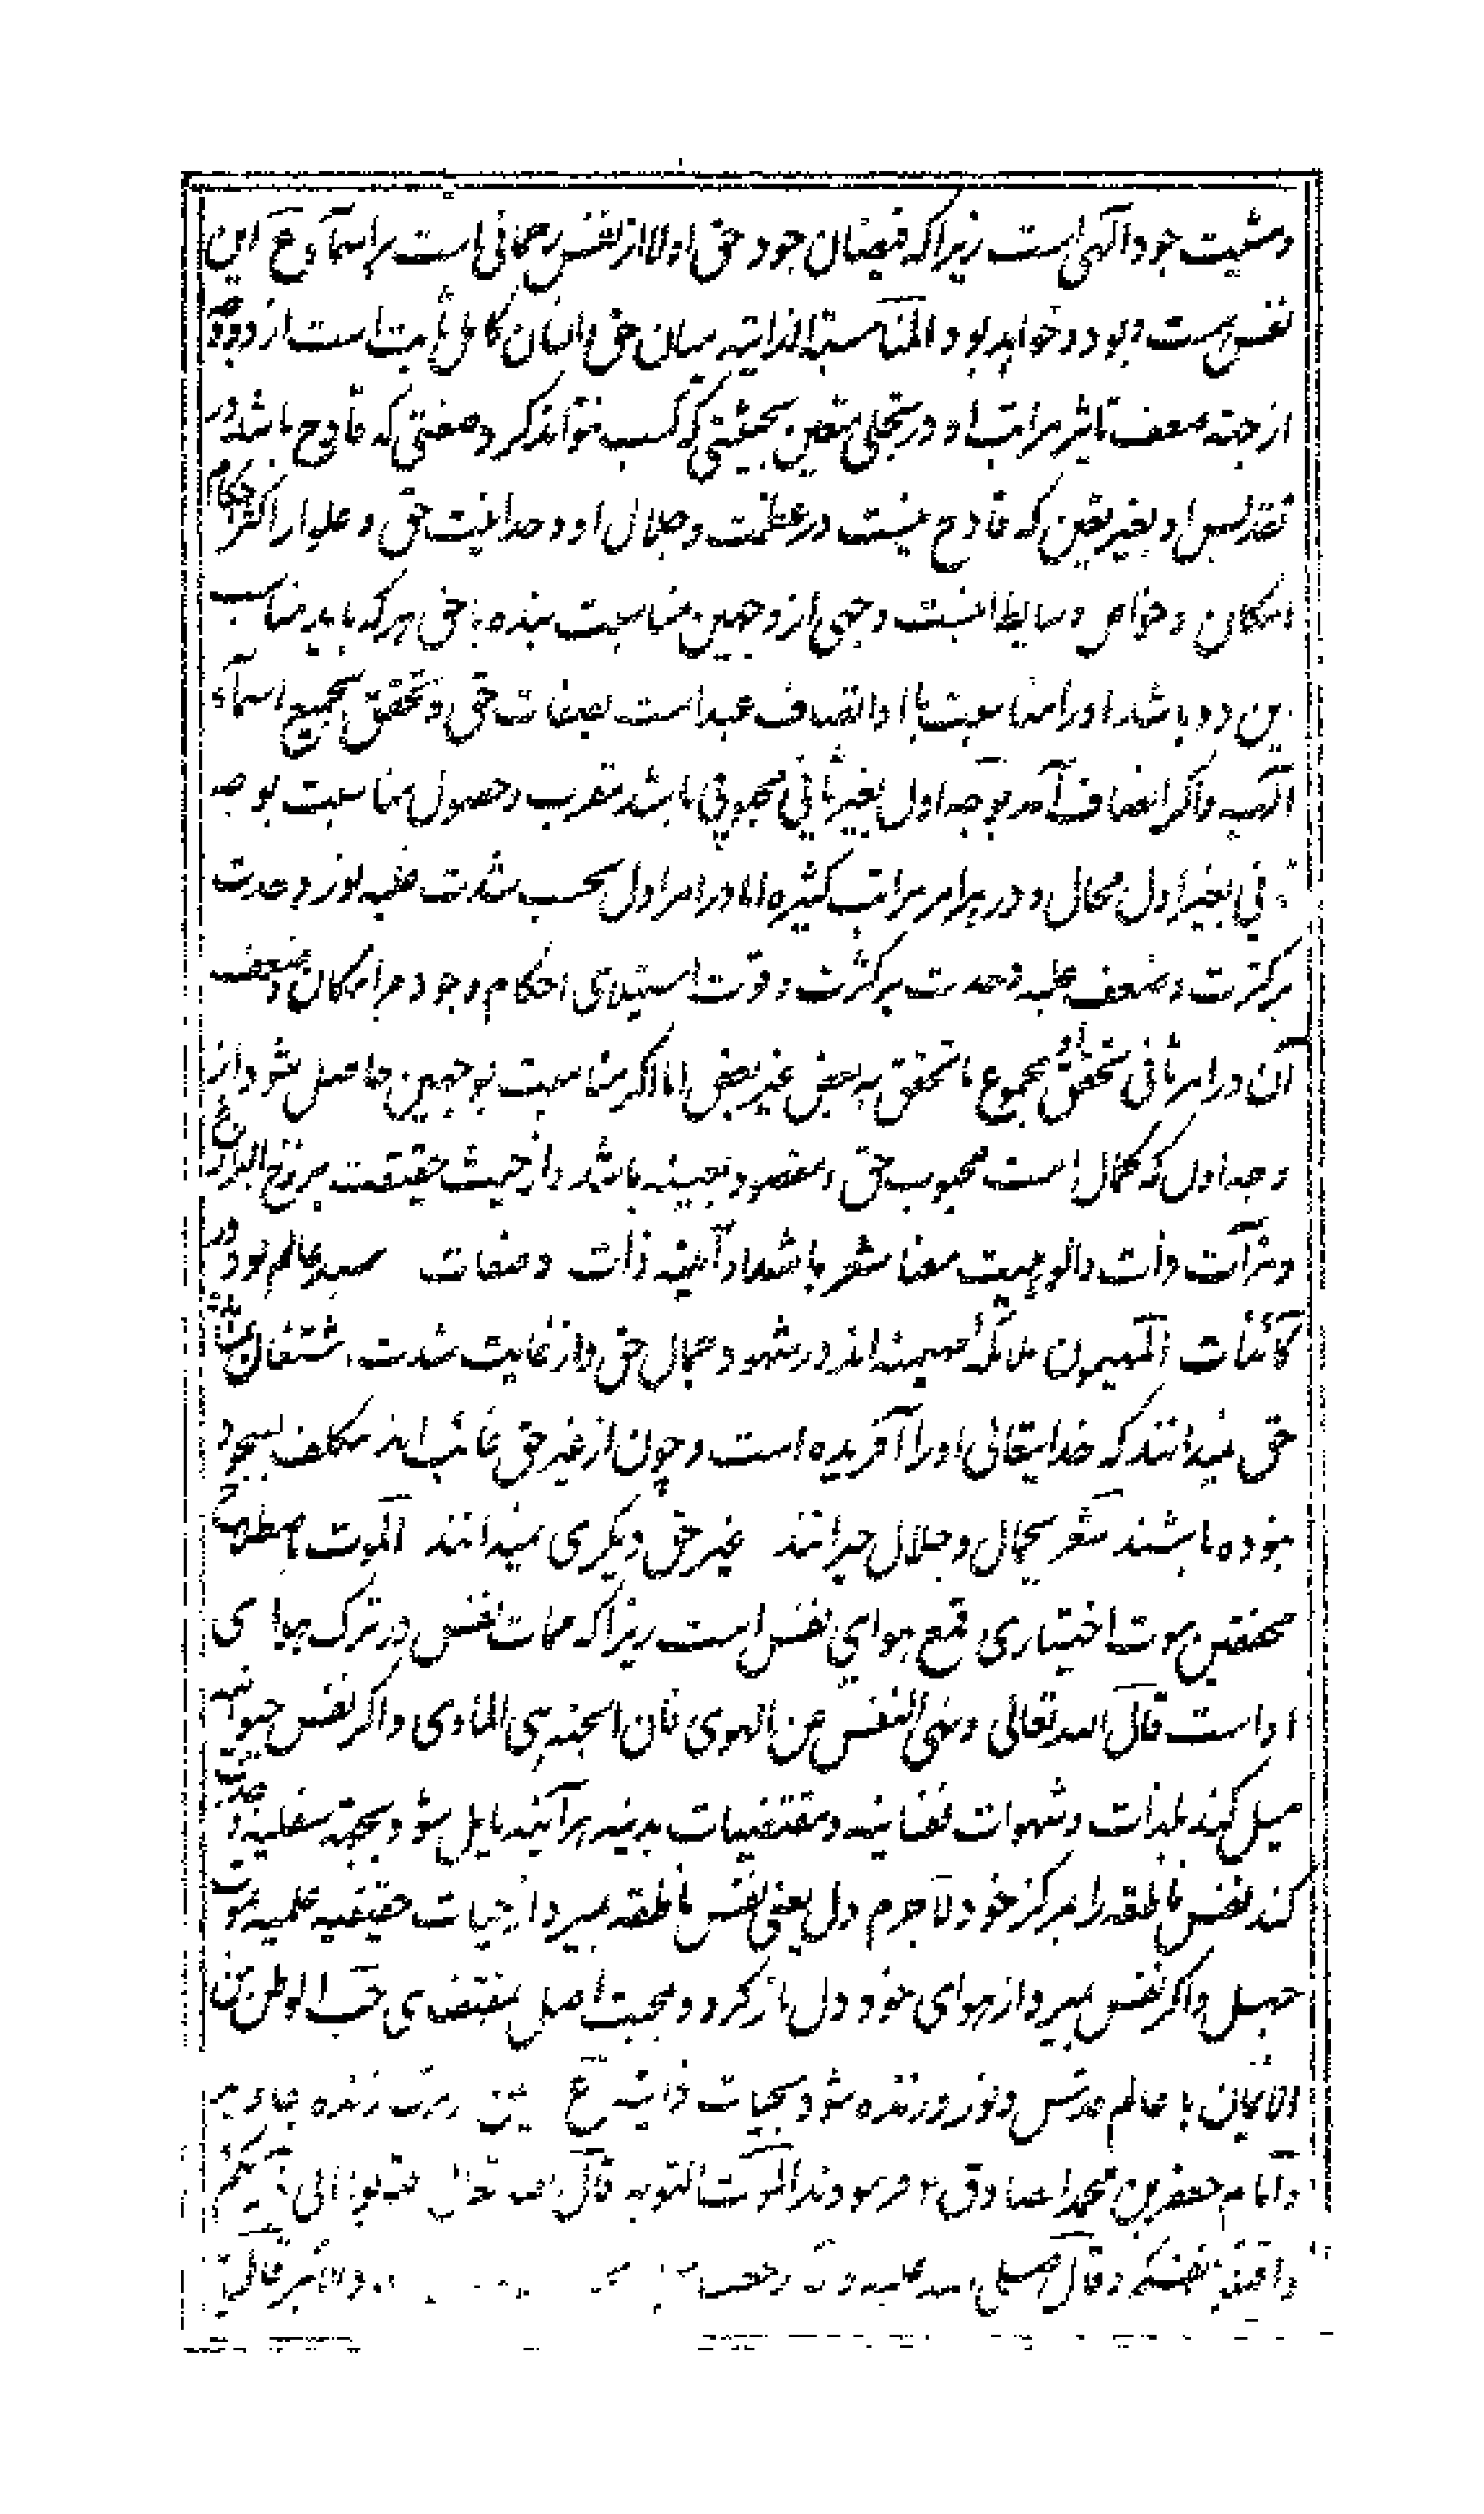 ومشیت جود الهی است زیرا که فیضان جود حق اولا از نفس رحمانی است بر اسما و ع این
نفس هست و بود و خواهد بود المناسبة الذاتیه میان حق و انسان کامل ثابت است از دو وجه
از جهته ضعف تاثیر مراتب او در تجلی متعین بحیثیتی که کسب نتواند کرد صفتی که قادح باشد در
تقدس او بغیر تعین که قادح نیست در عظمت و جلال او و حدانیت حق و علیا را اکثر احکام
امکان و خواص وسایط انیست وجهی از وجهین مناسبت بنده با حق هر که باید مناسب
ین دو باشد او را مناسبت با او اتصاف عبد است بصفات حق و تحقق بجمیع اسماء
الهیه و اگر اتصاف آمد بوجه اول بغیر ثانی محبوبی باشد مقرب و حصول مناسبت بوجه
ثانی بغیر اول محال و در هر امر مراتب کثیره اما در امر اول بحسب شدت غلبه نور وحدت
بر کثرت و ضعف غلبه وحدت بر کثرت و قوت استیلای احکام وجود مر امکان و ضعف
آن در امر ثانی تحقق او بمجموع یا تحقق به بعض غیر بعض اما اگر مناسبت بوجهین حاصل شود از
وجه اول که کمال است محبوب حق و مقصود بعینه باشد و از حیث حقیقت برزخ البرازخ
ومرآت ذات و الوهیت معنا شعر باشد او آئینه ذات و صفات سید عالم بود در
کائنات المهیمون ملائکه مهیمنه اند در شهود جمال حق و از غایت شدت اشتغال
حق نمیدانند که خدایتعالی او را آفریده است و چون از غیر حق غائب اند مکلف بسجود
نبوده باشند شعر بجمال و جلال حیرانند غیر حق دیگری نمیدانند الموت باصطلاح
محققین موت اختیاری قمع هوای نفس است زیرا که ممات نفس در ترک هوای
او است قال الله تعالی ونهی النفس عن الهوی فان الجنه هی الماوی و اگر نفس حیوانیه
میل کند بلذات و شهوات نفسانیه و مقتضیات بدنیه هر آئینه مایل شود بجهته سفلیه و جذب
کند نفس ناطقه را بمرکز خود لاجرم دل یعنی نفس ناطقه بمیرد از حیات حقیقیه علمیه بموت
جهل و اگر نفس بمیرد از هوای خود دل باز گردد و بمحبت اصل بمقتضای حب الوطن من
الایمان با عالم قدس و نور و زنده شود بحیات ذاتیه ع زنده جاوید
و امام جعفر بن محمد الصادق فرمودند الموت التوبه قال الله تعالی فتوبوا الی بارئکم
فاقتلوا انفسکم و قال صلی الله علیه و قال